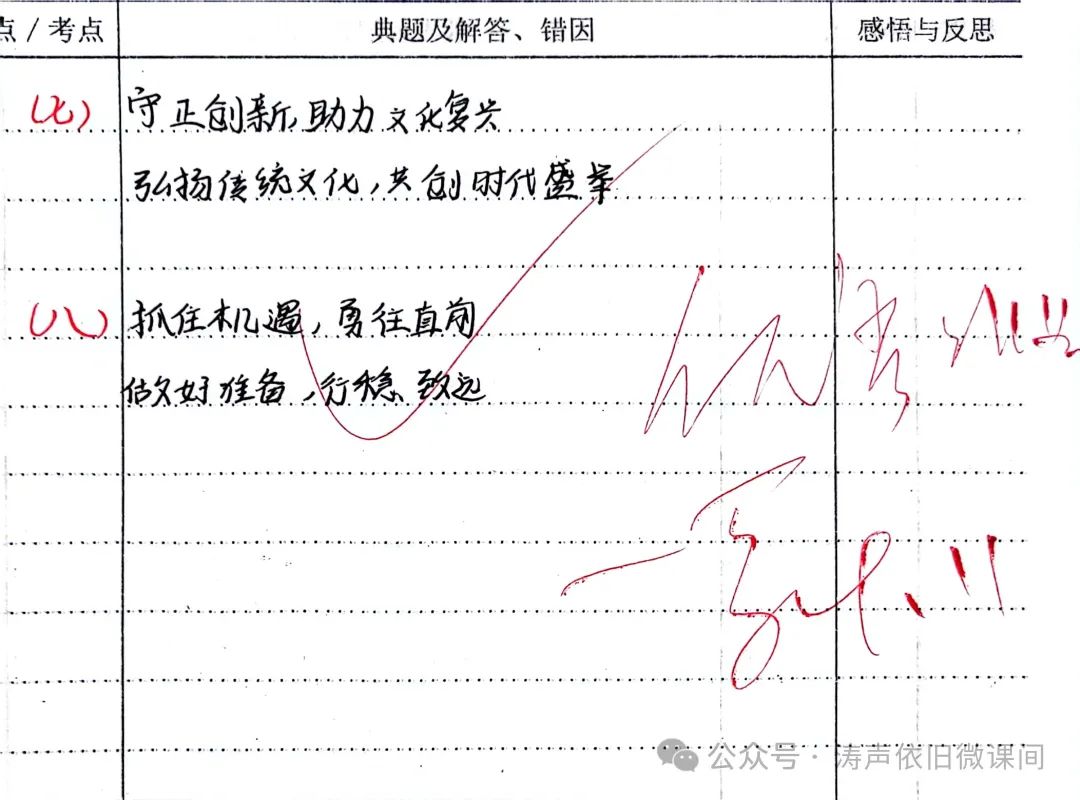 点/考点 典题及解答、错因 感悟与反思
(七) 守正创新,助力文化复兴
弘扬传统文化,共创时代盛举
(八) 抓住机遇,勇往直前
做好准备,行稳致远
公众号·涛声依旧微课间